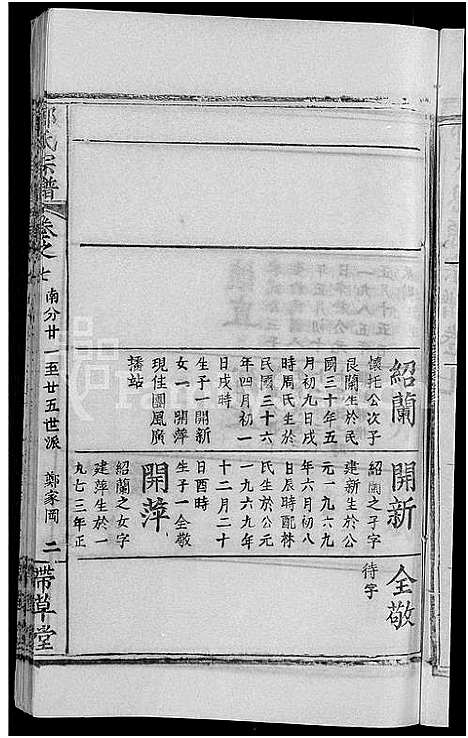 紹蘭
懷托公次子
艮蘭生於民
國三十年五
月初九日戌
時周氏生於
民國三十六
年四月初一
日戌時
生子一開新
女一 開萍
現住團風廣
播站
開新
紹蘭之子字
建新生於公
元一九六九
年六月初八
日辰時配林
氏生於公元
一九六九年
十二月二十
日酉時
生子一全敬
開萍
紹蘭之女字
建萍生於一
九七三年正
全敬
待字
氏宗譜
卷之七
南分廿一至廿五世派
鄭家岡
二
帶草堂